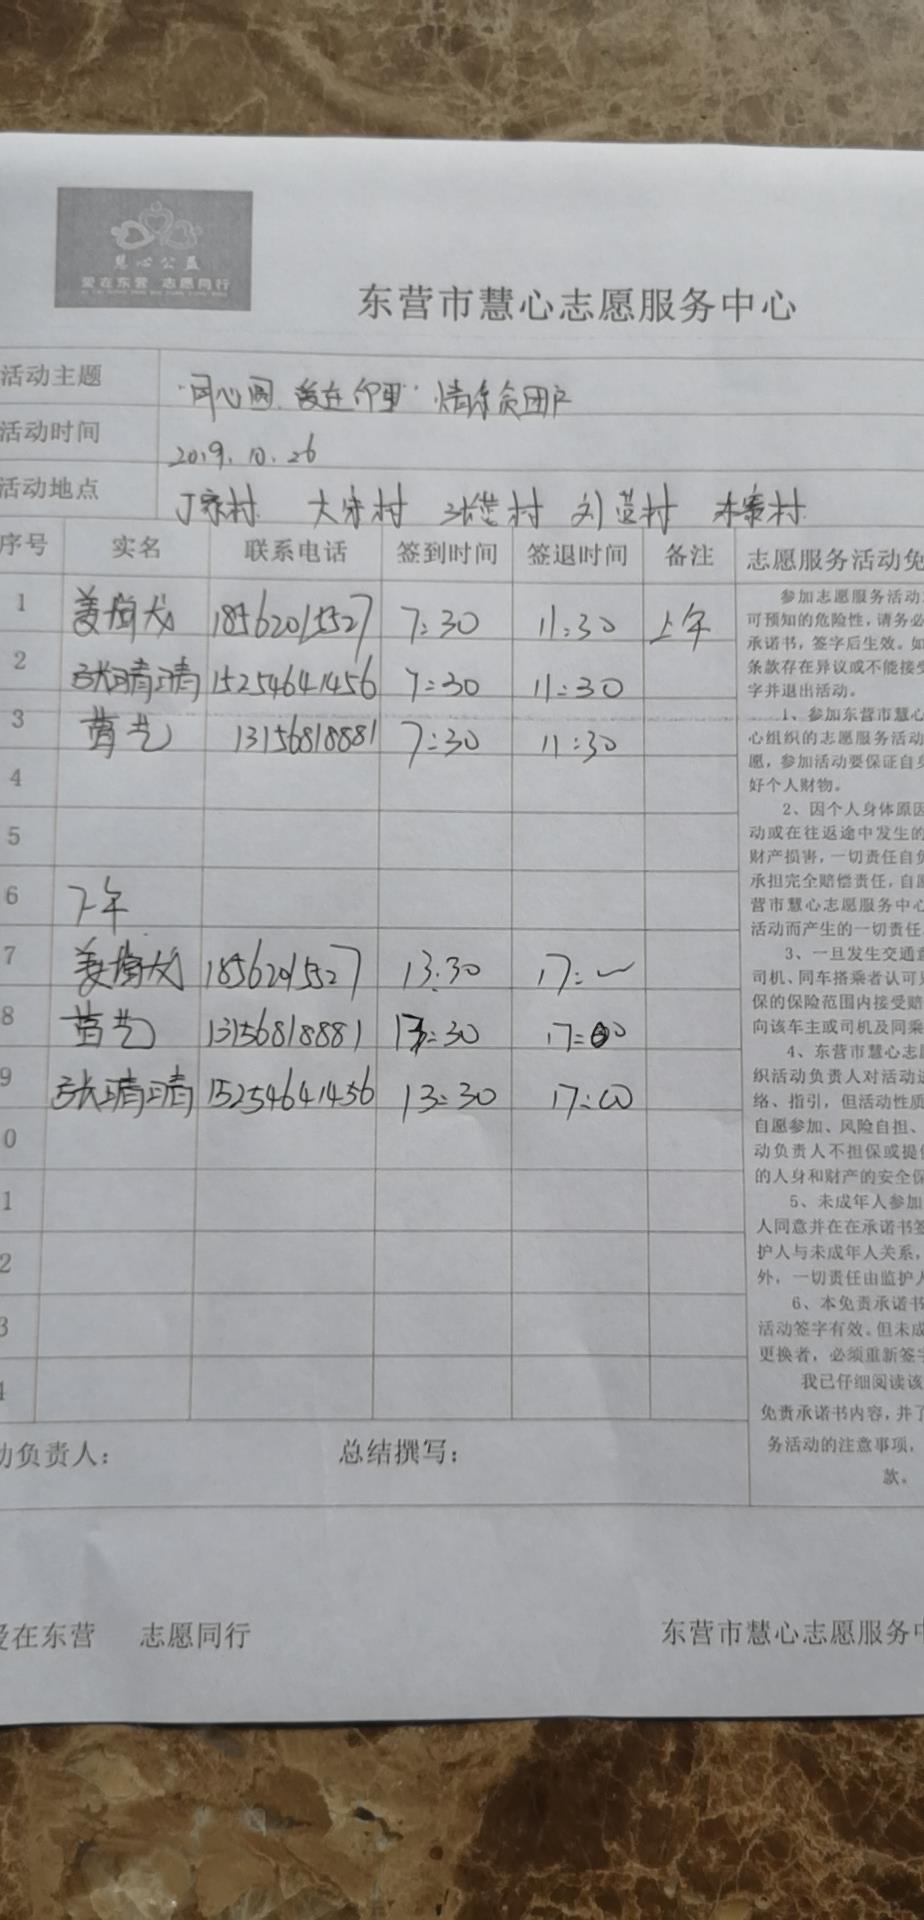 慧心公益
爱在东营 志愿同行
东营市慧心志愿服务中心
活动主题 "同心圆、爱在
活动时间 2019.10.26
活动地点 丁家村 大宋村 村 刘 村 村
序号 实名 联系电话 签到时间 签退时间 备注 志愿服务活动免
1 姜 18562015527 7:30 11:30 上午
2 张晴晴 15254641456 7:30 11:30
3 曹艺 13156818881 7:30 11:30
4
5
6 下午
7 姜 18562015527 13:30 17:
8 曹艺 13156818881 13:30 17:00
9 张晴晴 15254641456 13:30 17:00
0
1
2
3
4
动负责人： 总结撰写：
参加志愿服务活动
可预知的危险性，请务必
承诺书，签字后生效。如
条款存在异议或不能接受
字并退出活动。
1、参加东营市慧心
心组织的志愿服务活动
愿，参加活动要保证自身
好个人财物。
2、因个人身体原因
动或在往返途中发生的
财产损害，一切责任自负
承担完全赔偿责任，自愿
营市慧心志愿服务中心
活动而产生的一切责任
3、一旦发生交通意
司机、同车搭乘者认可
保的保险范围内接受赔
向该车主或司机及同乘
4、东营市慧心志愿
织活动负责人对活动进
络、指引，但活动性质
自愿参加、风险自担、
动负责人不担保或提供
的人身和财产的安全保
5、未成年人参加
人同意并在在承诺书签
护人与未成年人关系，
外，一切责任由监护人
6、本免责承诺书
活动签字有效。但未成
更换者，必须重新签字
我已仔细阅读该
免责承诺书内容，并了
务活动的注意事项，
款。
爱在东营 志愿同行 东营市慧心志愿服务中